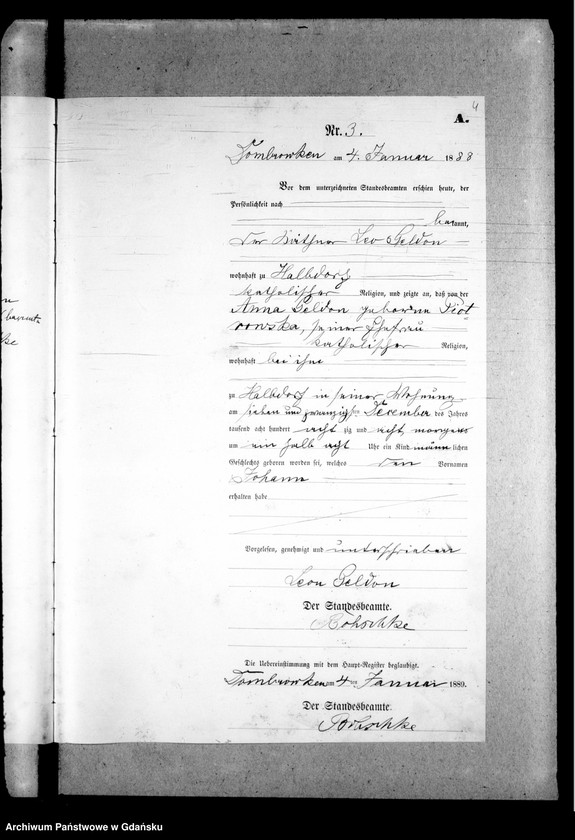 4
A.
Nr. 3.
Dombrowken am 4. Januar 1888
Vor dem unterzeichneten Standesbeamten erschien heute, der
Persönlichkeit nach
bekannt,
der Käthner Leo Geldon
wohnhaft zu Halbdorf
katholischer Religion, und zeigte an, daß von der
Anna Geldon geborene Piot
rowska, seiner Ehefrau
katholischer Religion,
wohnhaft bei ihm
zu Halbdorf in seiner Wohnung
am sieben und zwanzigsten December des Jahres
tausend acht hundert acht zig und acht, morgens
um ein halb acht Uhr ein Kind männlichen
Geschlechts geboren worden sei, welches den Vornamen
Johann
erhalten habe
Vorgelesen, genehmigt und unterschrieben
Leon Geldon
Der Standesbeamte.
Die Uebereinstimmung mit dem Haupt-Register beglaubigt.
Dombrowken am 4ten Januar 1889.
Der Standesbeamte.
Archiwum Państwowe w Gdańsku